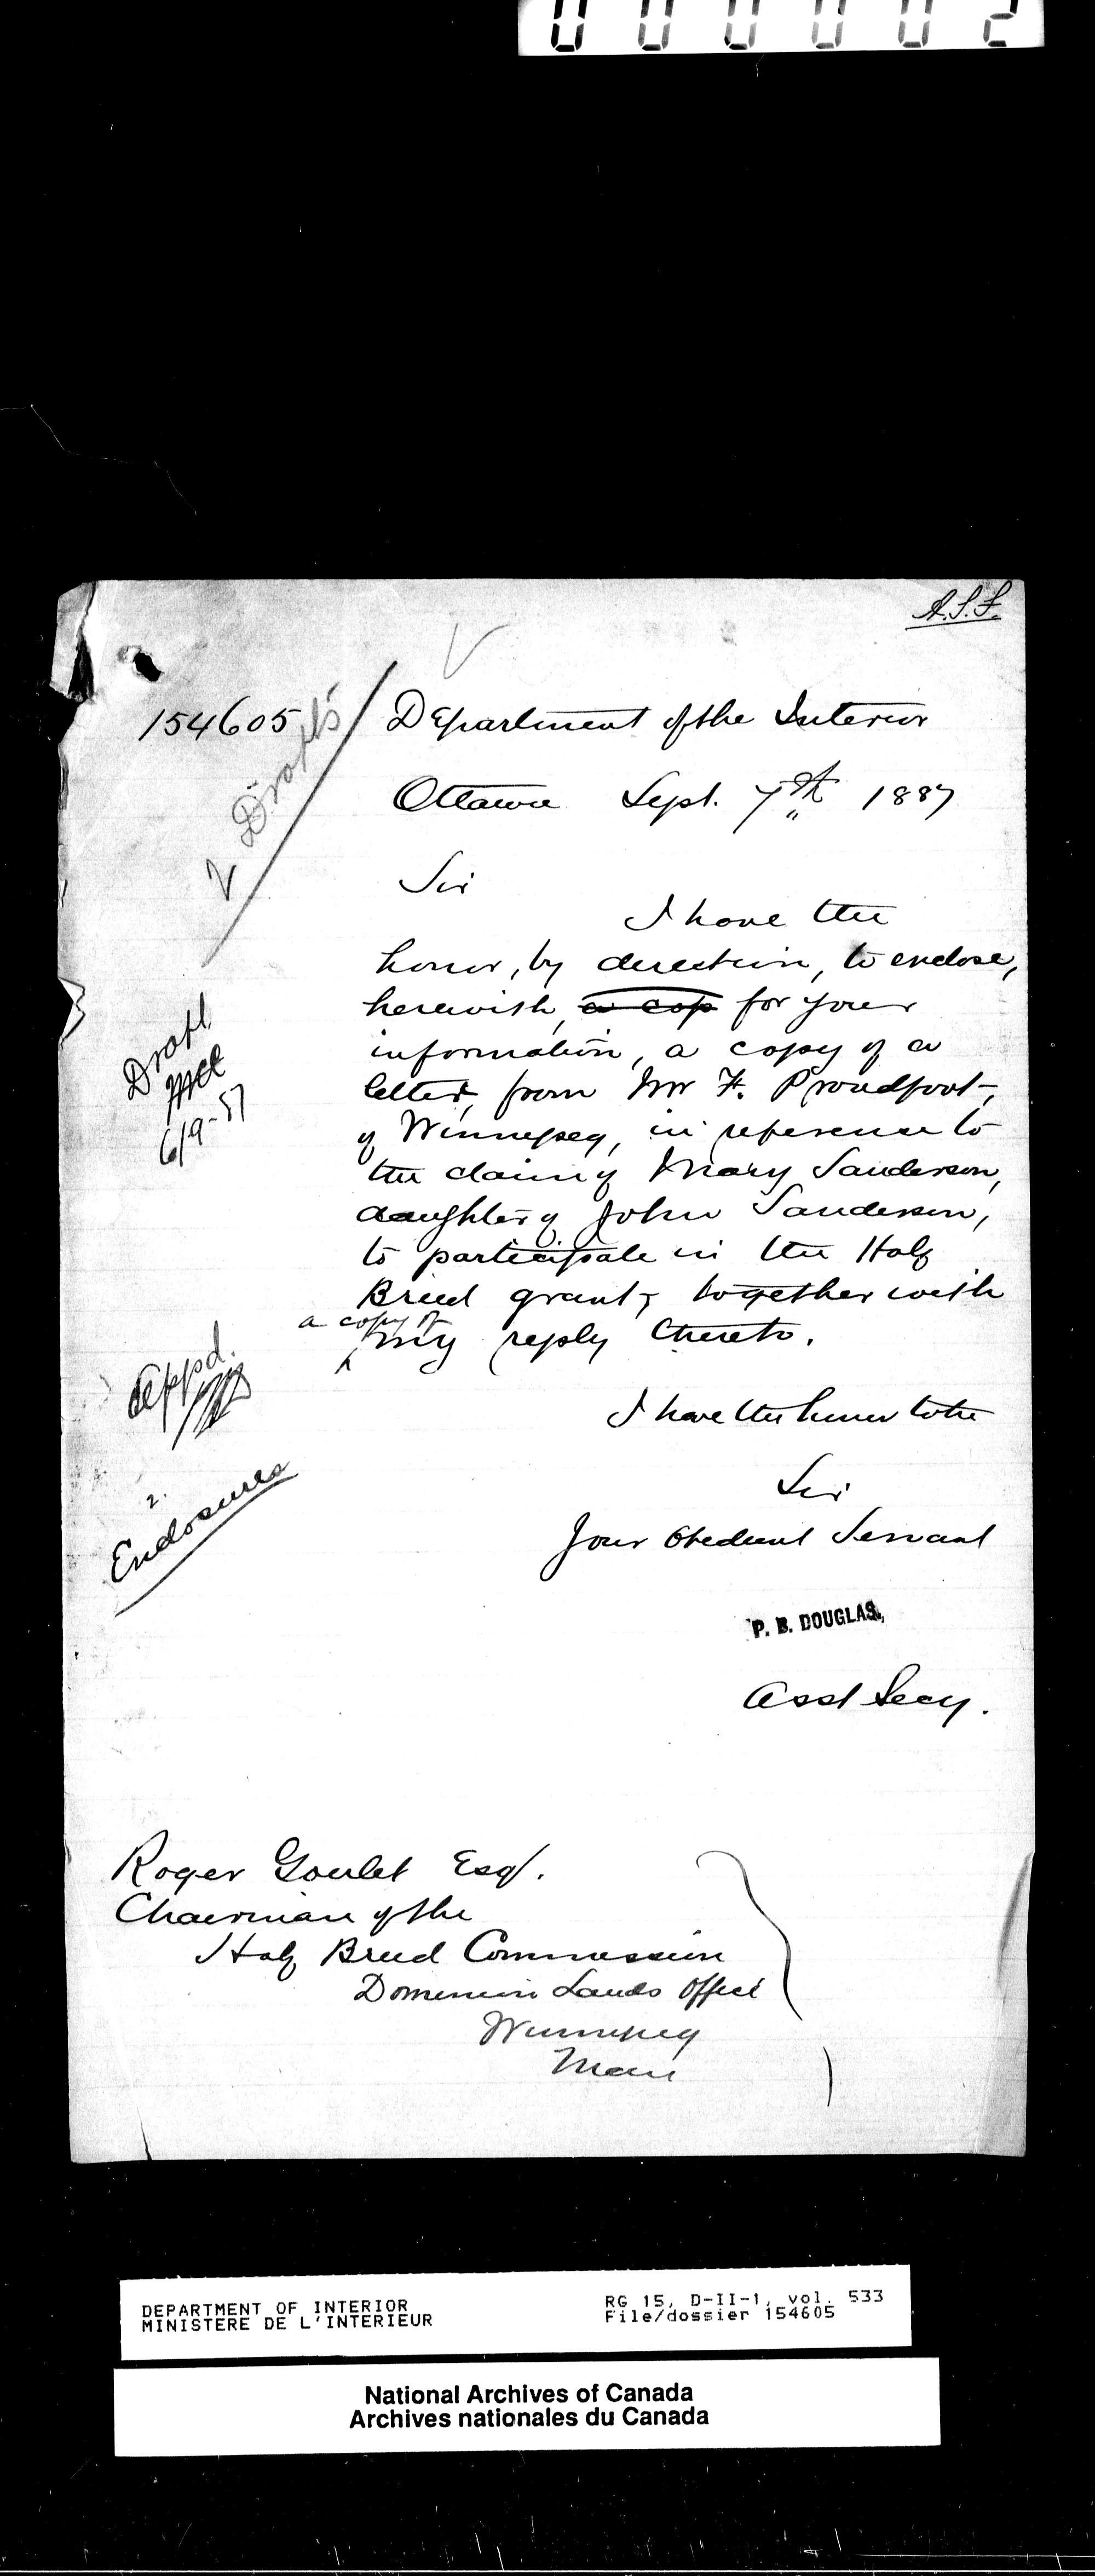 000002
A.S.F.
154605
2 Drafts
Department of the Interior
Ottawa Sept. 7th 1887
Sir
I have the
honor, by direction, to enclose,
herewith, a cop for your
information, a copy of a
letter, from Mr F. Proudfoot,
of Winnipeg, in reference to
the claim of Mary Sanderson,
daughter of John Sanderson,
to participate in the Half
Breed grant, together with
a copy of
my reply thereto.
Draft
6/9-87
Appd.
2.
Enclosures
I have the honor to be
Sir
Your Obedient Servant
P. B. DOUGLAS,
Asst Secy.
Roger Goulet Esq.
Chairman of the
Half Breed Commission
Dominion Lands Office
Winnipeg
Man
DEPARTMENT OF INTERIOR
MINISTERE DE L'INTERIEUR
RG 15, D-II-1, vol. 533
File/dossier 154605
National Archives of Canada
Archives nationales du Canada